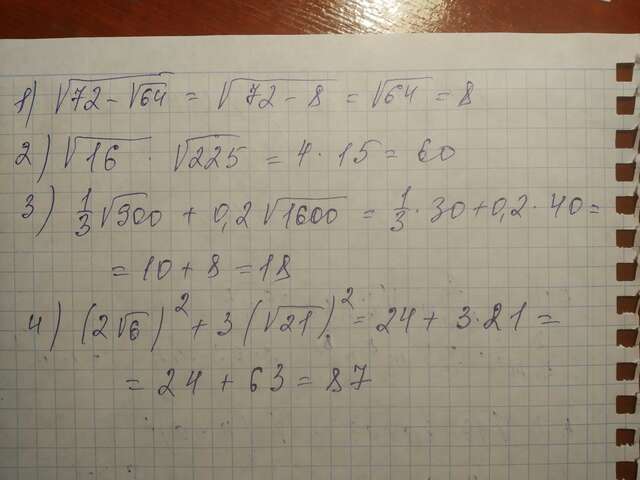 1) √(72 - √64) = √(72 - 8) = √64 = 8
2) √16 · √225 = 4 · 15 = 60
3) 1/3 √900 + 0,2 √1600 = 1/3 · 30 + 0,2 · 40 =
= 10 + 8 = 18
4) (2√6)² + 3 (√21)² = 24 + 3 · 21 =
= 24 + 63 = 87